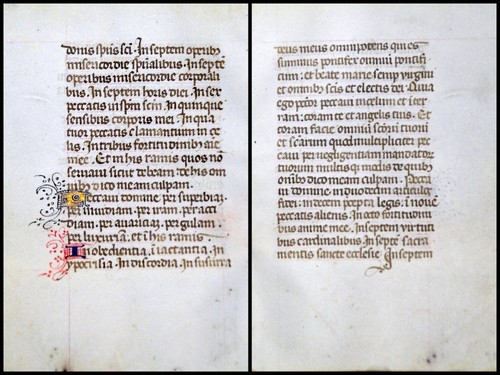 donis sp̄us sc̄i. In septem operibꝫ
misericordie sp̄ualibus. In septē
operibus misericordie corporali
bus. In septem horis diei. In sex
peccatis in sp̄m sc̄m. In quinque
sensibus corporis mei. In qua
tuor peccatis clamantium in ce
lis. In tribus fortitudinibꝫ aīe
mee. Et in his ramis quos nō
seruaui sicut debeam: de his om
nibꝫ dico meam culpam.
Peccaui domine per superbiaꝫ.
per inuidiam. per iram. per acci
diam. per auaritiaꝫ. per gulam.
per luxuriam. et ī his ramis.
In obedientia, ī iactantia. In
ypocrisia. In discordia. In susurra
deus meus omnipotens qui es
summus pontifex omniū pontifi
cum: et beate marie semp uirgini
et omnibꝫ scīs et electis dei. Quia
ego pctōr peccaui in celum et ter
ram: coram te et angelis tuis. Et
coram facie omniū scōrū tuorū
et scārum quod multipliciter pec
caui per negligentiam mandatoꝝ
tuorum multis qꝫ modis de quibꝫ
omnibꝫ dico meam culpam. Pecca
ui domine in duodecim articulis
fidei: in decem precepta legis: ī nouē
peccatis alienis. In octo fortitudini
bus anime mee. In septem uirtuti
bus cardinalibus. In septē sacra
mentis sancte ecclesie. In septem